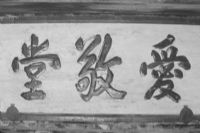 愛敬堂